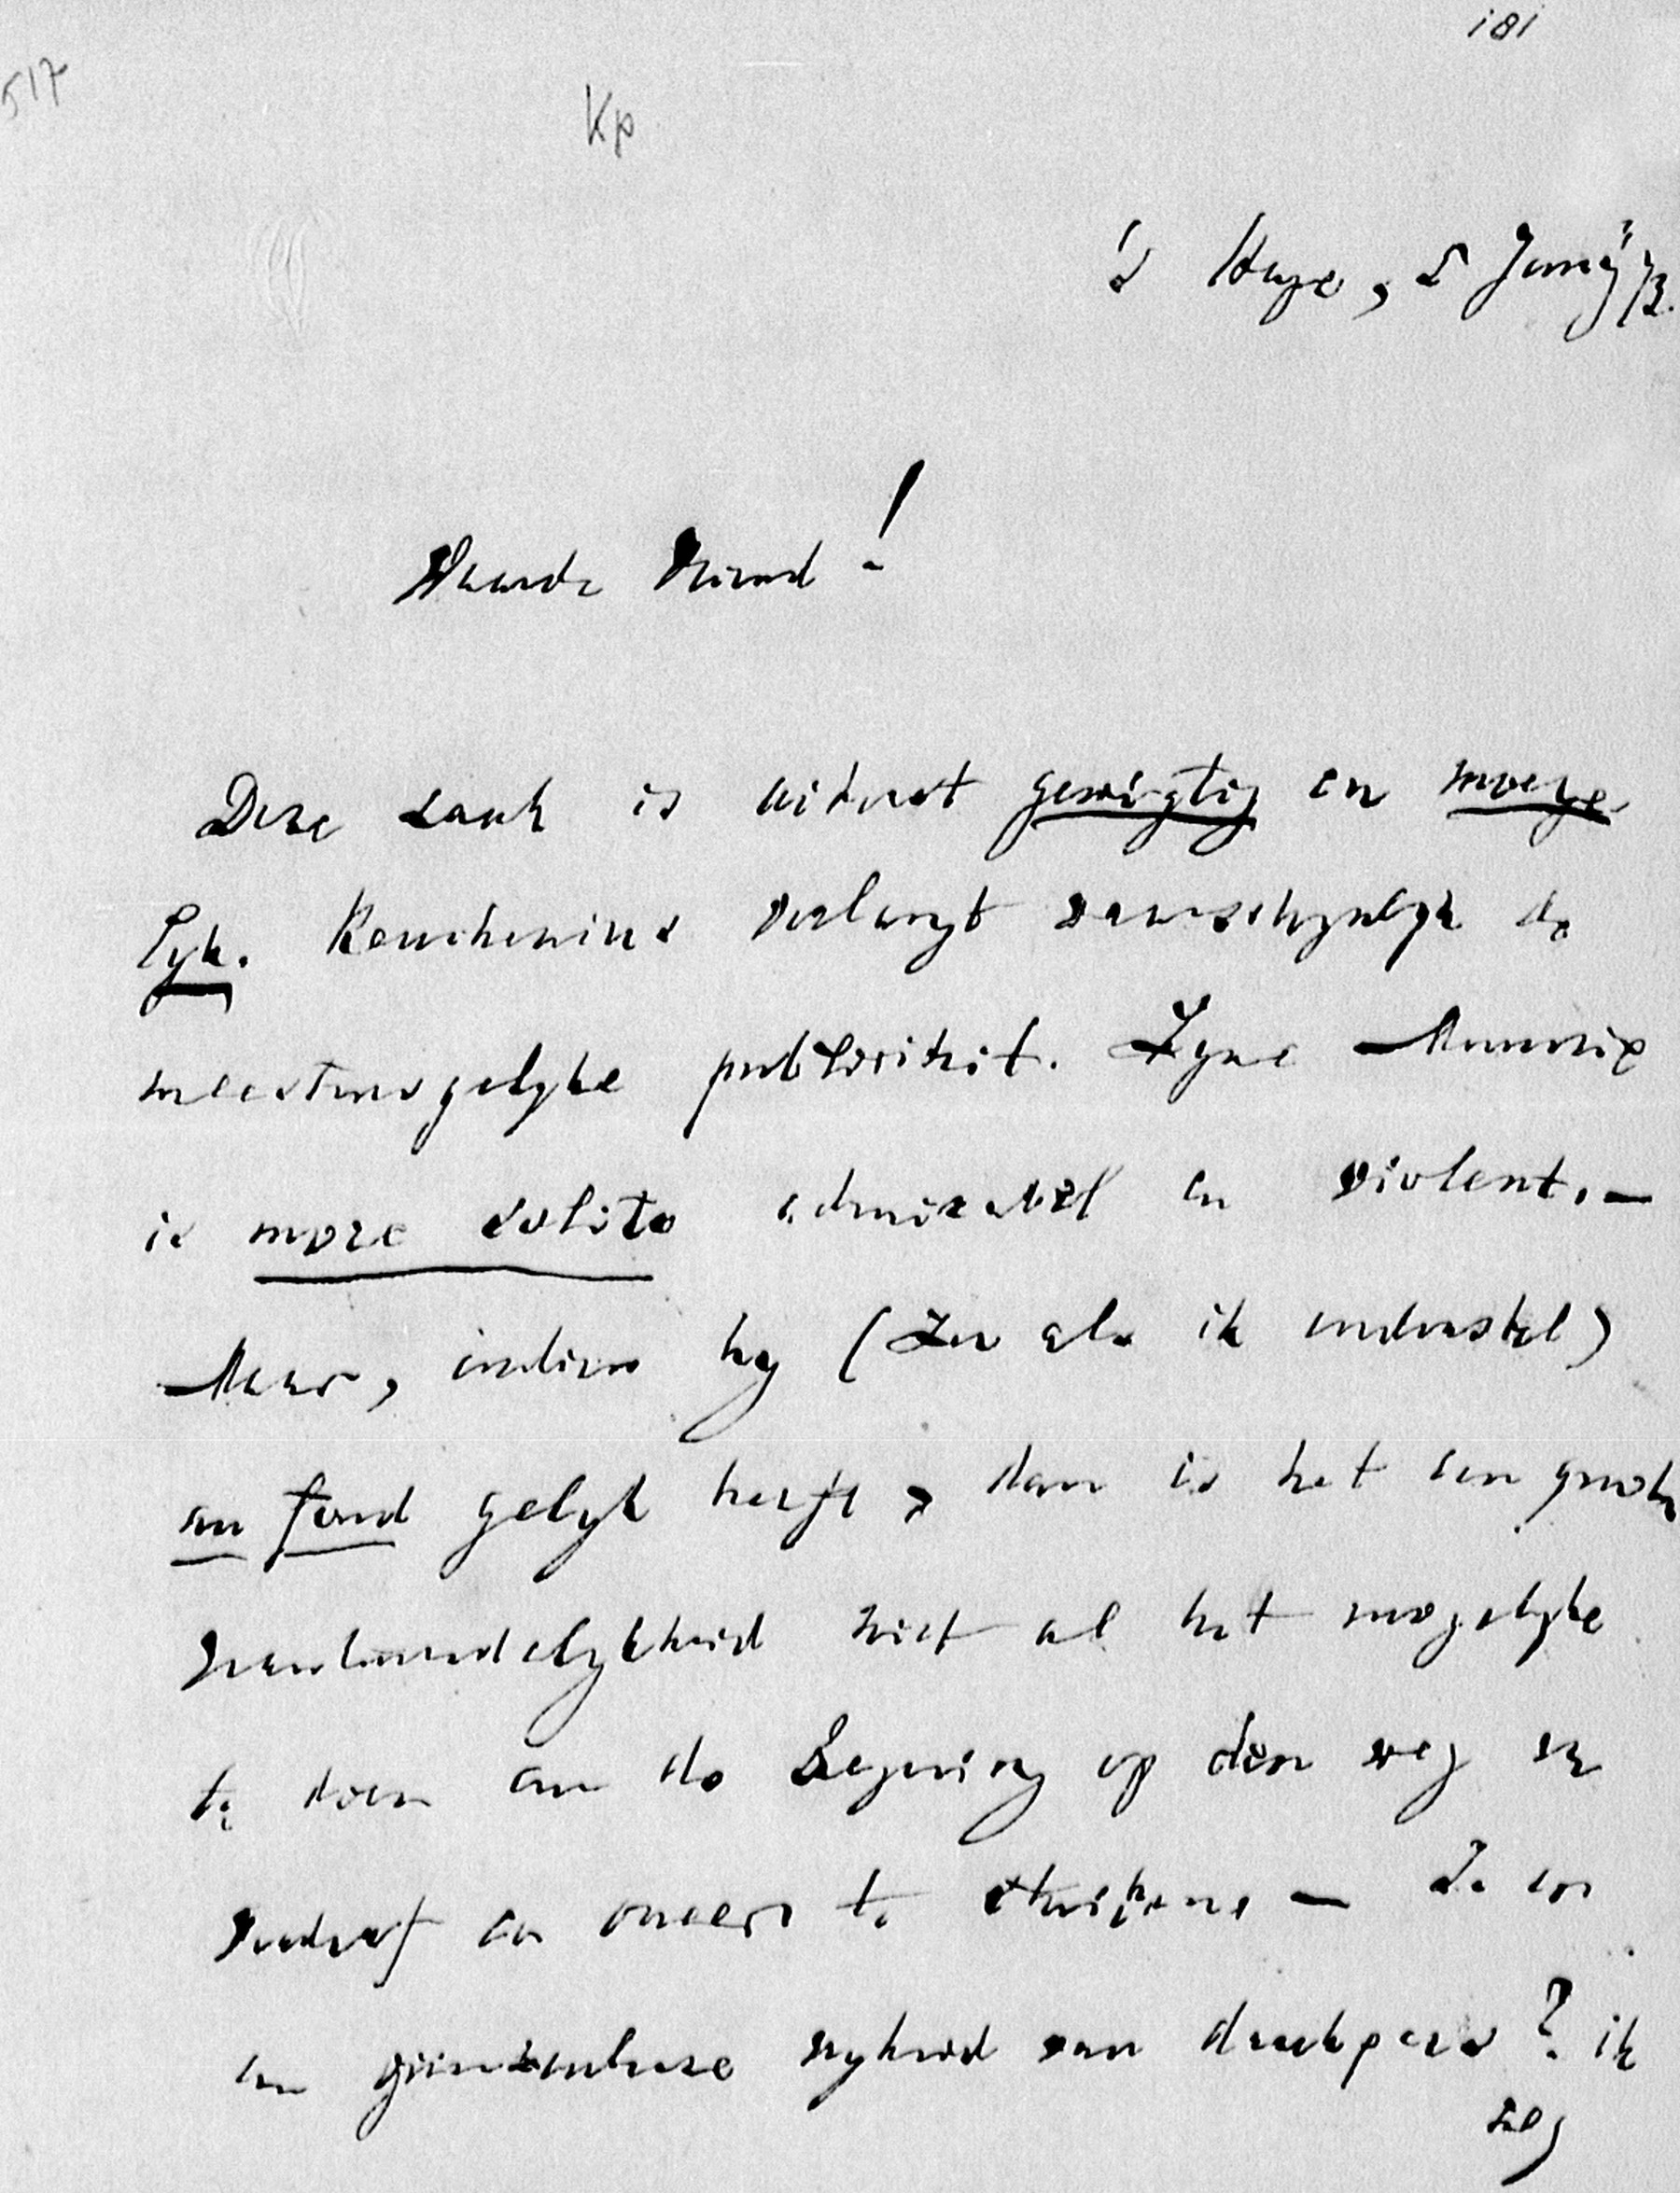 181
517
Kp
's Hage, 5 Januij 73.
Waarde Vriend!
Deze zaak is uiterst gewigtig en moeije-
lyk. Keuchenius verlangt waarschynlyk de
meestmogelyke publiciteit. Zyne Memorie
is more solito admirabel en violent. —
Maar, indien hy (zoo als ik onderstel)
au fond gelyk heeft, dan is het een groote
verantwoordelykheid niet al het mogelyke
te doen om de Regering op den weg van
bederf en oneer te stuiten. — Is er
een grenzenlooze vryheid van drukpers? ik
zeg